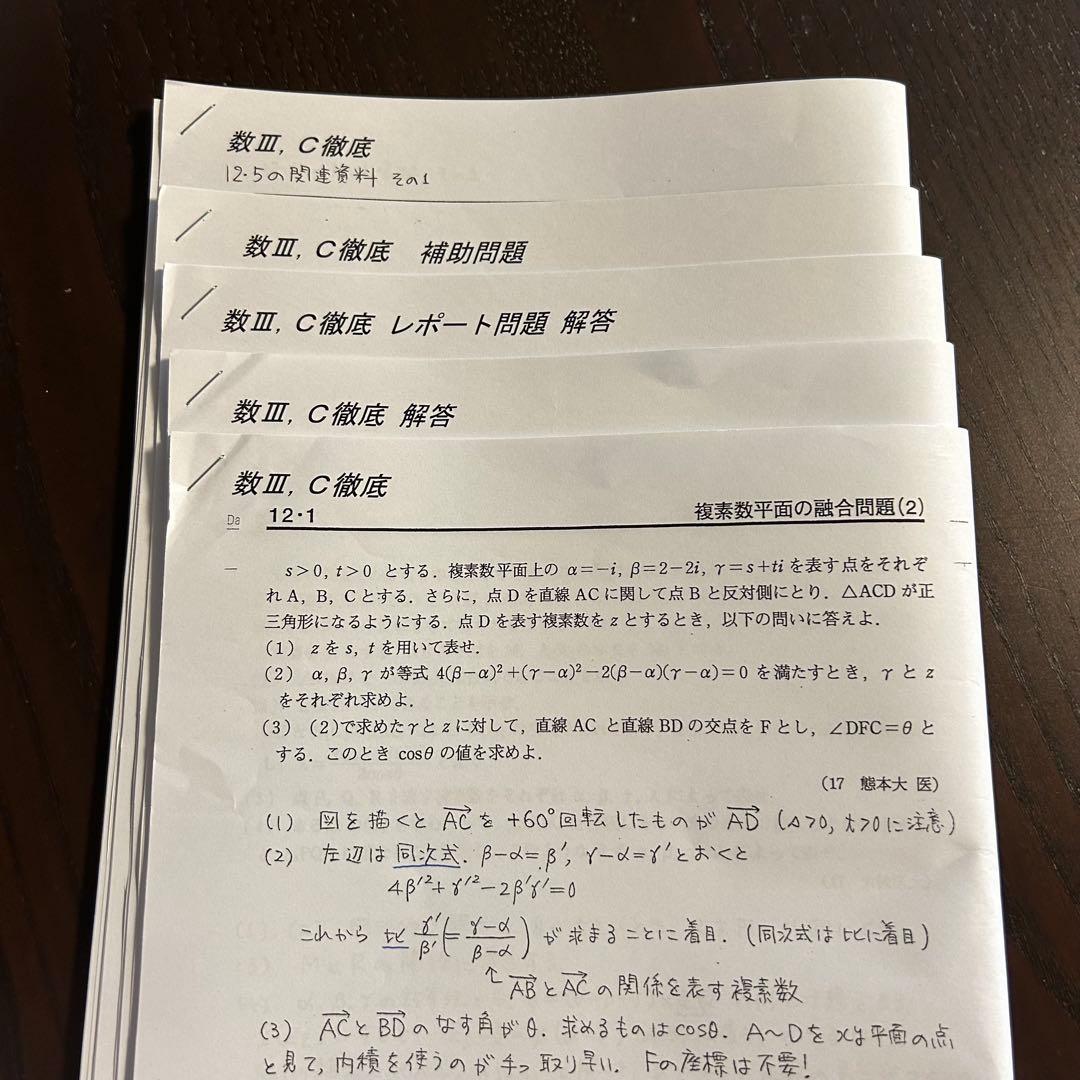 数Ⅲ, C徹底
12・5の関連資料 その1
数Ⅲ, C徹底 補助問題
数Ⅲ, C徹底 レポート問題 解答
数Ⅲ, C徹底 解答
数Ⅲ, C徹底
Da 12・1 複素数平面の融合問題(2)
s>0, t>0 とする. 複素数平面上の α=−i, β=2−2i, γ=s+ti を表す点をそれぞ
れ A, B, C とする. さらに, 点 D を直線 AC に関して点 B と反対側にとり, △ACD が正
三角形になるようにする. 点 D を表す複素数を z とするとき, 以下の問いに答えよ.
(1) z を s, t を用いて表せ.
(2) α, β, γ が等式 4(β−α)²+(γ−α)²−2(β−α)(γ−α)=0 を満たすとき, γ と z
をそれぞれ求めよ.
(3) (2)で求めた γ と z に対して, 直線 AC と直線 BD の交点を F とし, ∠DFC=θ と
する. このとき cosθ の値を求めよ.
(17 熊本大 医)
(1) 図を描くと AC→ を +60°回転したものが AD→ (s>0, t>0に注意)
(2) 左辺は同次式. β−α=β′, γ−α=γ′とおくと
4β′²+γ′²−2β′γ′=0
これから 比 γ′/β′(=(γ−α)/(β−α)) が求まることに着目. (同次式は比に着目)
↑ AB→ と AC→ の関係を表す複素数
(3) AC→ と BD→ のなす角がθ. 求めるものはcosθ. A〜Dを xy平面の点
と見て, 内積を使うのが手っ取り早い. Fの座標は不要!